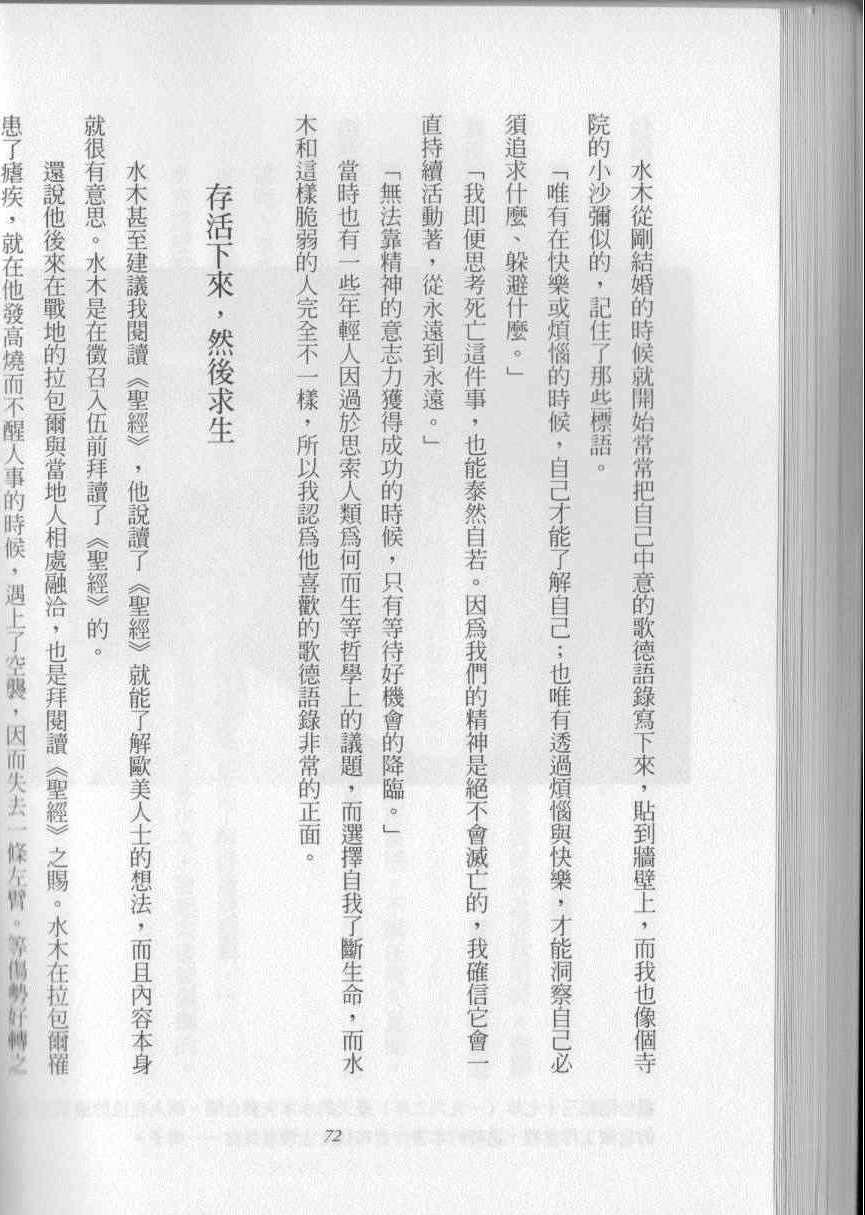 水木從剛結婚的時候就開始常常把自己中意的歌德語錄寫下來，貼到牆壁上，而我也像個寺
院的小沙彌似的，記住了那些標語。
「唯有在快樂或煩惱的時候，自己才能了解自己；也唯有透過煩惱與快樂，才能洞察自己必
須追求什麼、躲避什麼。」
「我即便思考死亡這件事，也能泰然自若。因爲我們的精神是絕不會滅亡的，我確信它會一
直持續活動著，從永遠到永遠。」
「無法靠精神的意志力獲得成功的時候，只有等待好機會的降臨。」
當時也有一些年輕人因過於思索人類爲何而生等哲學上的議題，而選擇自我了斷生命，而水
木和這樣脆弱的人完全不一樣，所以我認爲他喜歡的歌德語錄非常的正面。
存活下來，然後求生
水木甚至建議我閱讀《聖經》，他說讀了《聖經》就能了解歐美人士的想法，而且內容本身
就很有意思。水木是在徵召入伍前拜讀了《聖經》的。
還說他後來在戰地的拉包爾與當地人相處融洽，也是拜閱讀《聖經》之賜。水木在拉包爾罹
患了瘧疾，就在他發高燒而不醒人事的時候，遇上了空襲，因而失去一條左臂。等傷勢好轉之
72